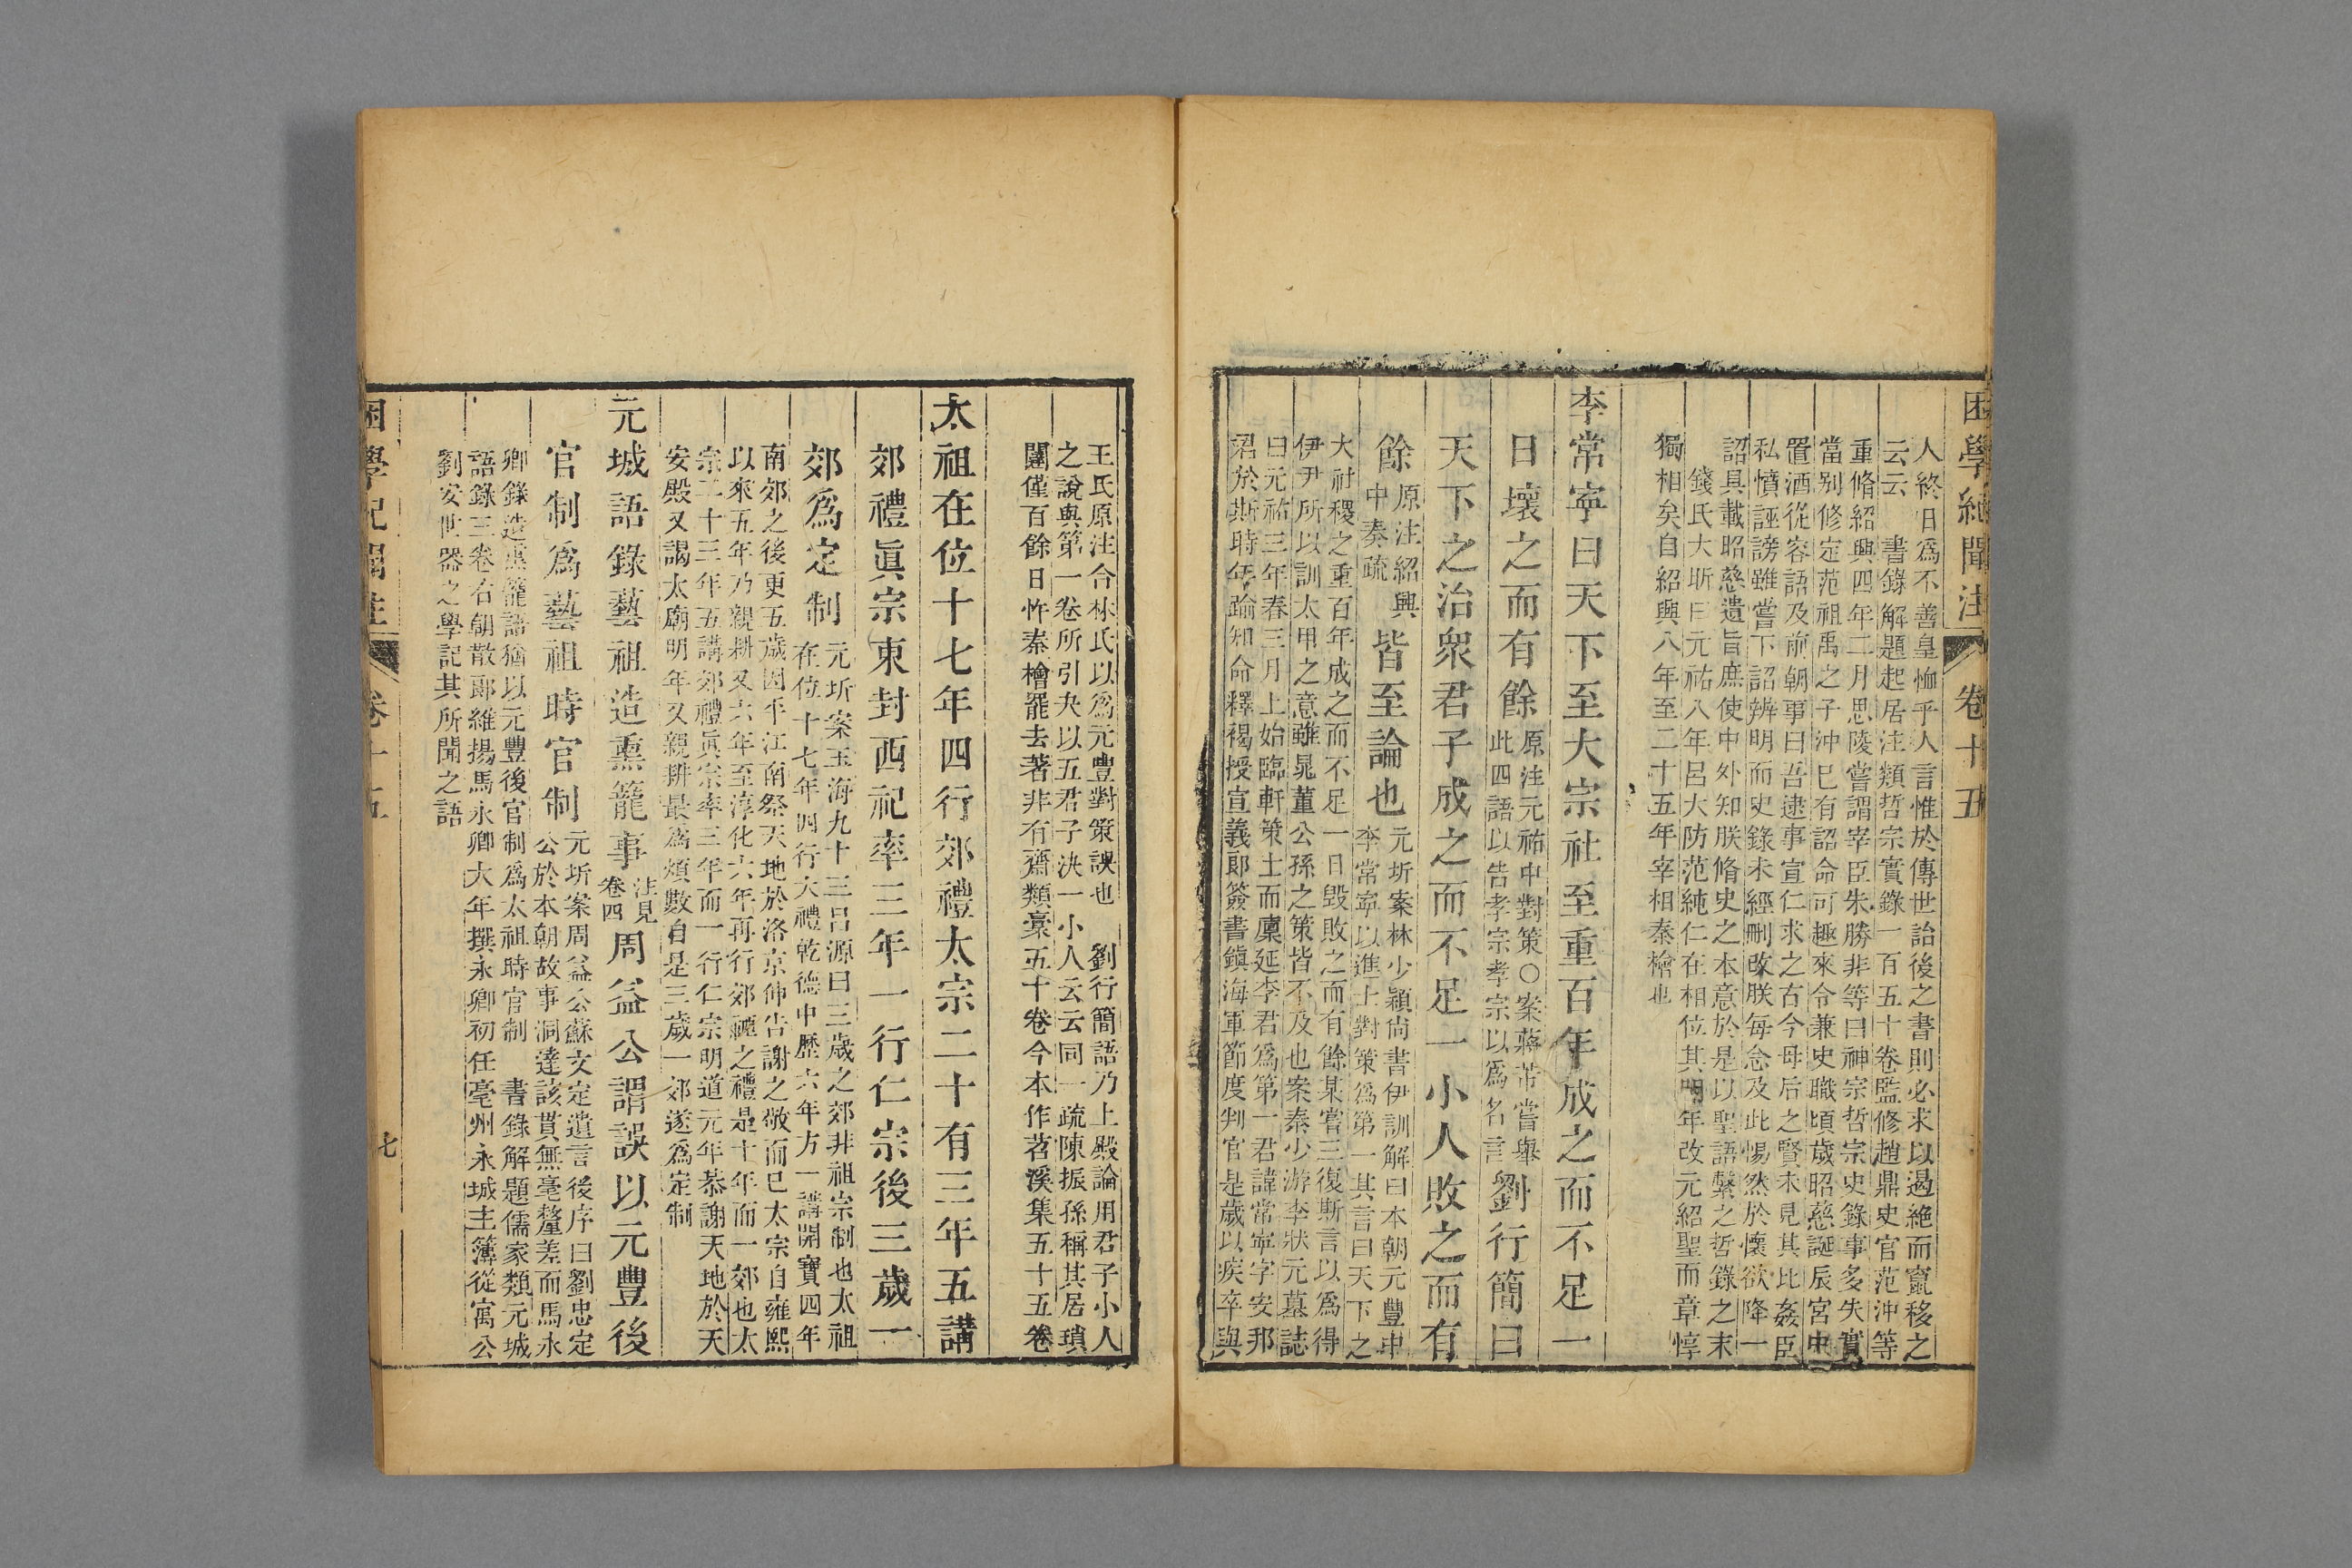 困學紀聞注 卷十五
人終日爲不善皇恤乎人言惟於傳世詒後之書則必求以遏絶而竄移之
云云　書錄解題起居注類哲宗實錄一百五十卷監修趙鼎史官范沖等
重脩紹興四年二月思陵嘗謂宰臣朱勝非等曰神宗哲宗史錄事多失實
當别修定范祖禹之子沖巳有詔命可趣來令兼史職頃歲昭慈誕辰宮中
置酒從容語及前朝事曰吾逮事宣仁求之古今母后之賢未見其比姦臣
私憤誣謗雖嘗下詔辨明而史錄未經刪改朕每念及此惕然於懷欲降一
詔具載昭慈遺旨庶使中外知朕脩史之本意於是以聖語繫之哲錄之末
錢氏大昕曰元祐八年呂大防范純仁在相位其明年改元紹聖而章惇
獨相矣自紹興八年至二十五年宰相秦檜也
李常寧曰天下至大宗社至重百年成之而不足一
日壞之而有餘
原注元祐中對策○案蔣芾嘗舉
此四語以告孝宗孝宗以爲名言
劉行簡曰
天下之治衆君子成之而不足一小人敗之而有
餘
原注紹興
中奏疏
皆至論也
元圻案林少穎尚書伊訓解曰本朝元豐中
李常寧以進士對策爲第一其言曰天下之
大社稷之重百年成之而不足一日毁敗之而有餘某嘗三復斯言以爲得
伊尹所以訓太甲之意雖晁董公孫之策皆不及也案秦少游李狀元墓誌
曰元祐三年春三月上始臨軒策士而廩延李君爲第一君諱常寧字安邦
君於斯時年踰知命釋褐授宣義郞簽書鎭海軍節度判官是歲以疾卒與
王氏原注合林氏以爲元豐對策誤也　劉行簡語乃上殿論用君子小人
之說與第一卷所引夬以五君子決一小人云云同一疏陳振孫稱其居瑣
闥僅百餘日忤秦檜罷去著非有齋類稾五十卷今本作苕溪集五十五卷
太祖在位十七年四行郊禮太宗二十有三年五講
郊禮眞宗東封西祀率三年一行仁宗後三歲一
郊爲定制
元圻案玉海九十三呂源曰三歲之郊非祖宗制也太祖
在位十七年四行大禮乾德中歷六年方一講開寶四年
南郊之後更五歲因平江南祭天地於洛京伸告謝之敬而巳太宗自雍熙
以來五年乃親耕又六年至淳化六年再行郊禋之禮是十年而一郊也太
宗二十三年五講郊禮眞宗率三年而一行仁宗明道元年恭謝天地於天
安殿又謁太廟明年又親耕最爲煩數自是三歲一郊遂爲定制
元城語錄藝祖造熏籠事
注見
卷四
周益公謂誤以元豐後
官制爲藝祖時官制
元圻案周益公蘇文定遺言後序曰劉忠定
公於本朝故事洞達該貫無毫釐差而馬永
卿錄造熏籠語猶以元豐後官制爲太祖時官制　書錄解題儒家類元城
語錄三卷右朝散郞維揚馬永卿大年撰永卿初任亳州永城主簿從寓公
劉安世器之學記其所聞之語
困學紀聞注 卷十五 七